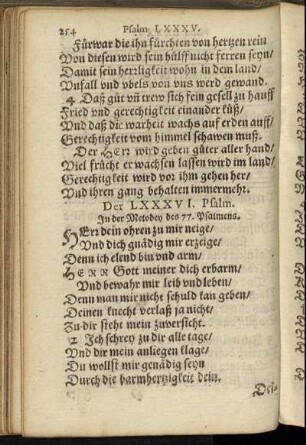 254 Psalm LXXXV.
Fürwar die ihn fürchten von hertzen rein
Von diesen wird sein hülff nicht ferren seyn/
Damit sein herrligkeit wohn in dem land/
Vnfall vnd vbels von vns werd gewand.
4 Daß güt vñ trew sich sein gesell zu hauff
Fried vnd gerechtigkeit einander küß/
Vnd daß die warheit wachs auf erden auff/
Gerechtigkeit vom himmel schawen muß.
Der HErr wird geben güter aller hand/
Viel frücht erwachsen lassen wird im land/
Gerechtigkeit wird vor ihm gehen her/
Vnd ihren gang behalten immermehr.
Der LXXXVI. Psalm.
In der Melodey des 77. Psalmens.
HErr dein ohren zu mir neige/
Vnd dich gnädig mir erzeige/
Denn ich elend bin vnd arm/
HERR Gott meiner dich erbarm/
Vnd bewahr mir leib vnd leben/
Denn man mir nicht schuld kan geben/
Deinen knecht verlaß ja nicht/
Zu dir steht mein zuversicht.
2 Ich schrey zu dir alle tage/
Vnd dir mein anliegen klage/
Du wollst mir genädig seyn
Durch die barmhertzigkeit dein.